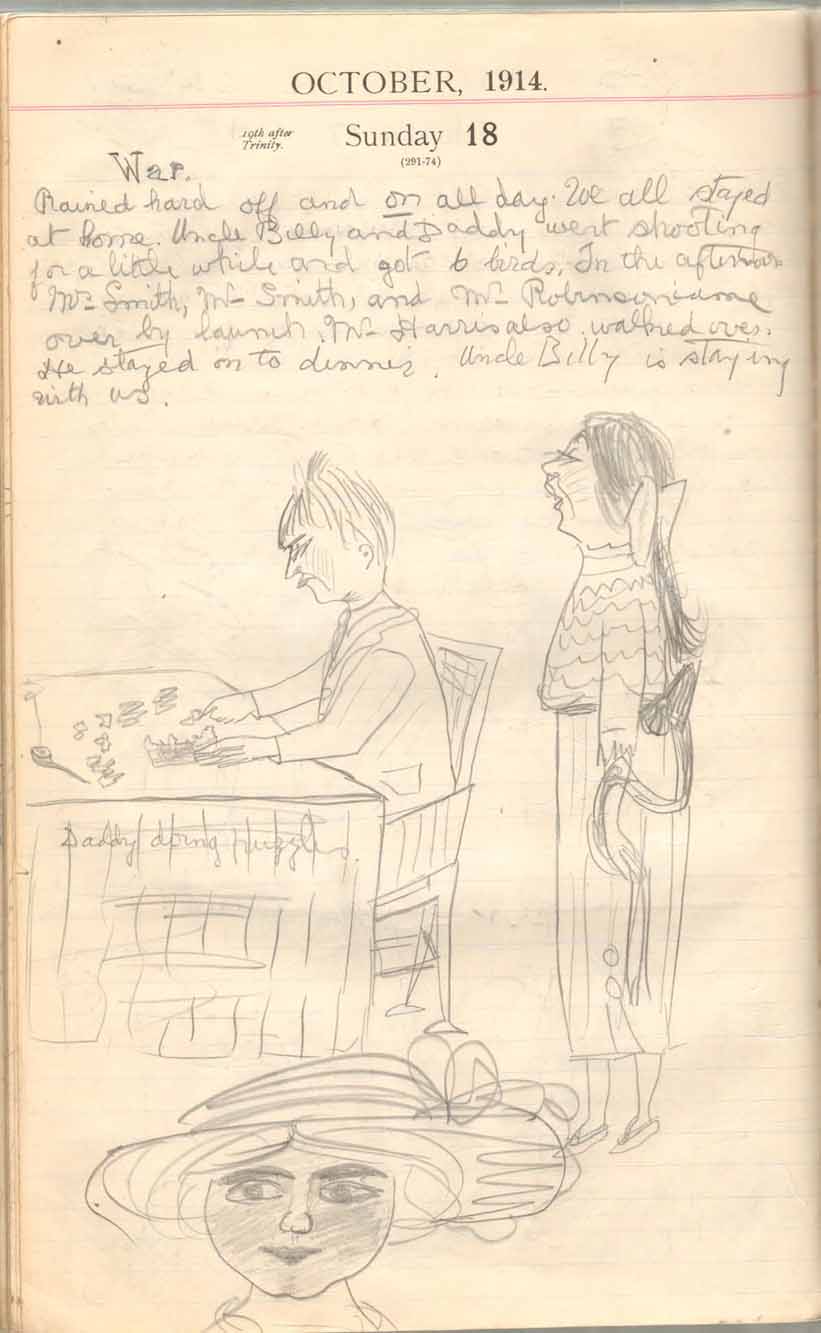 OCTOBER, 1914.
19th after
Trinity.
Sunday 18
(291-74)
War.
Rained hard off and on all day. We all stayed
at home. Uncle Billy and Daddy went shooting
for a little while and got 6 birds. In the afternoon
Mrs Smith, Mr Smith, and Mr Robinson came
over by launch. Mr Harris also walked over.
He stayed on to dinner. Uncle Billy is staying
with us.
Daddy doing puzzles.